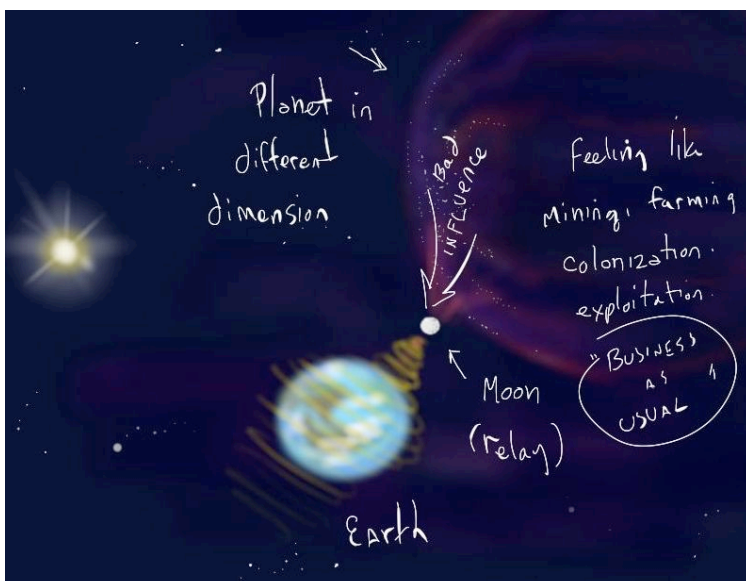 Planet in
different
dimension
Bad
INFLUENCE
Feeling lik
mining, farming
colonization.
exploitation.
"BUSINESS
AS
USUAL"
Moon
(relay)
Earth